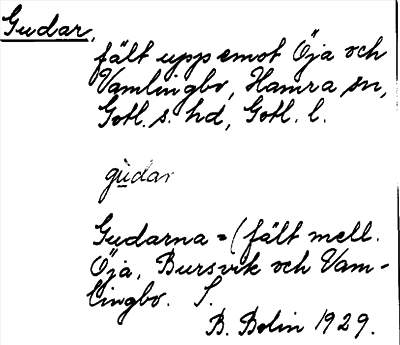 Gudar,
fält upp emot Öja och
Vamlingbo, Hamra sn,
Gotl. s. hd, Gotl. l.
gudar
Gudarna = (fält mell.
Öja, Bursvik och Vam-
lingbo. S.
B. Bolin 1929.